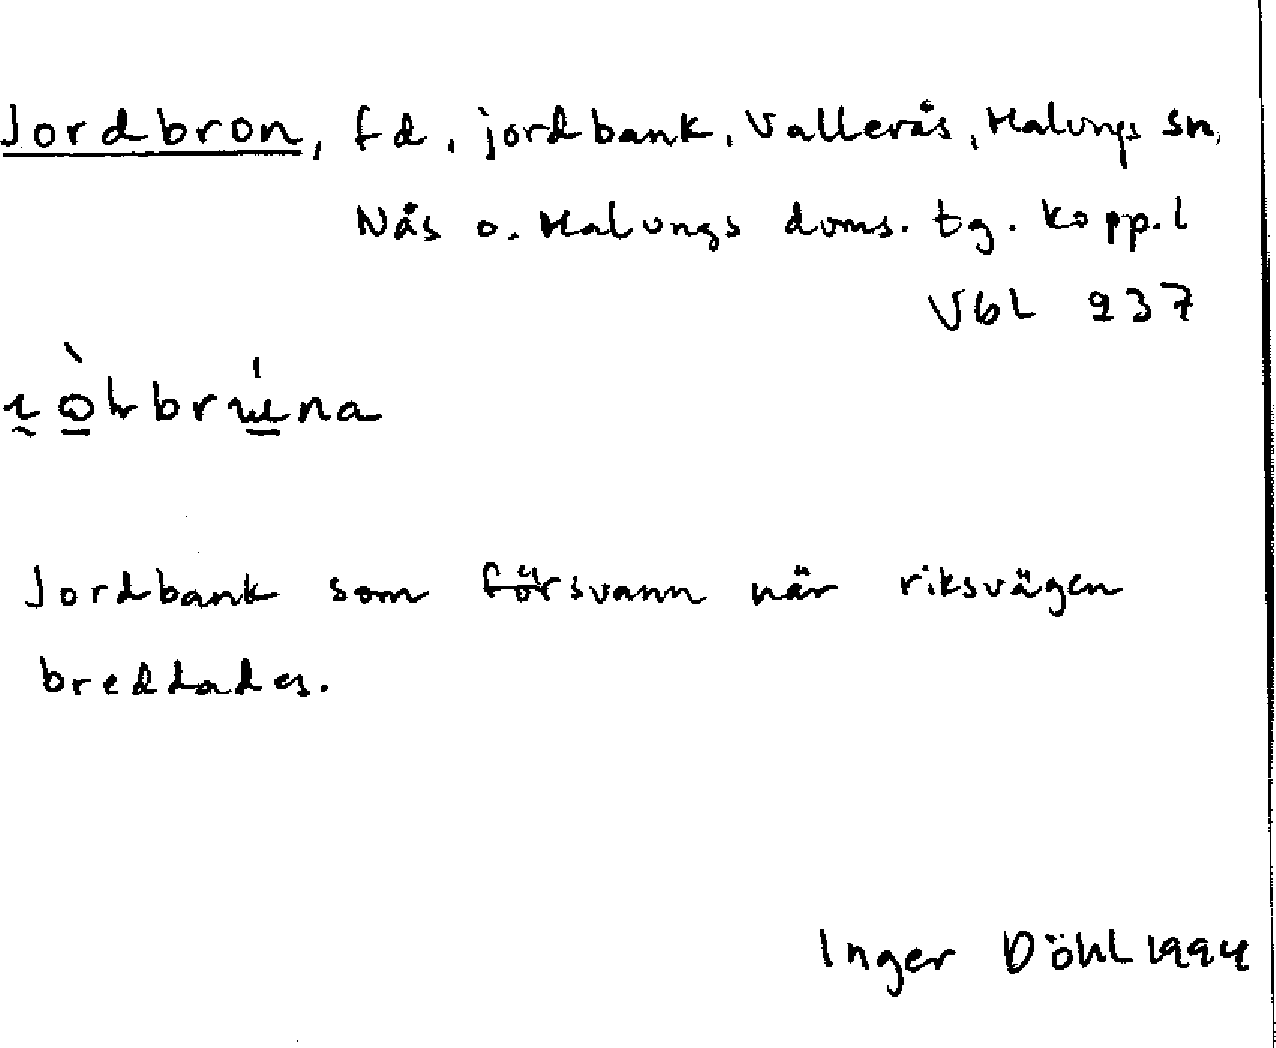 Jordbron, f d. jordbank, Vallerås, Malungs sn,
Nås o. Malungs doms. tg. Kopp. l
VbL 237
Jordbank som försvann när riksvägen
breddades.
Inger Döhl 1994